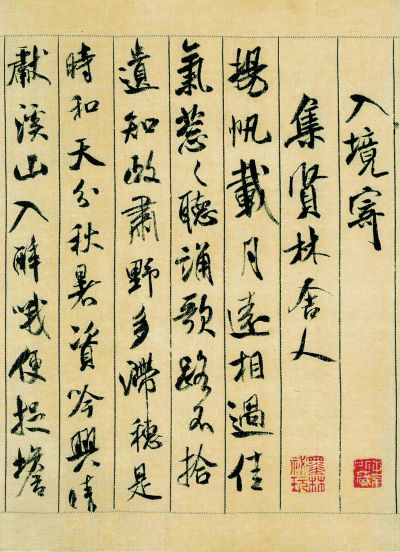 入境寄
集賢林舍人
揚帆載月遠相過佳
氣葱〻聽誦歌路不拾
遺知政肅野多滯穗是
時和天分秋暑資吟興晴
獻溪山入醉哦便捉蟾
墨林秘玩